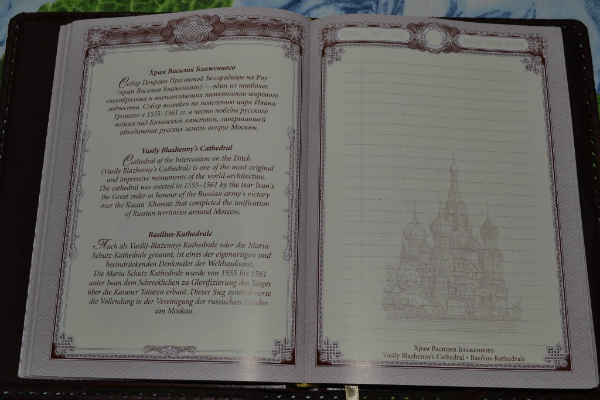 Храм Василия Блаженного
Собор Покрова Пресвятой Богородицы на Рву
(храм Василия Блаженного) — один из наиболее
своеобразных и впечатляющих памятников мирового
зодчества. Собор возведен по повелению царя Ивана
Грозного в 1555-1561 гг. в честь победы русского
войска над Казанским ханством, завершившей
объединение русских земель вокруг Москвы.
Vasily Blazhenny's Cathedral
Cathedral of the Intercession on the Ditch
(Vasily Blazhenny's Cathedral) is one of the most original
and impressive monuments of the world architecture.
The cathedral was erected in 1555-1561 by the tsar Ivan's
the Great order in honour of the Russian army's victory
over the Kazan' Khanate that completed the unification
of Russian territories around Moscow.
Basilius-Kathedrale
Auch als Vasilij-Blažennyj-Kathedrale oder die Maria-
Schutz-Kathedrale genannt, ist eines der eigenartigen und
beeindruckenden Denkmäler der Weltbaukunst.
Die Maria-Schutz Kathedrale wurde von 1555 bis 1561
unter Iwan dem Schrecklichen zu Glorifizierung des Sieges
über die Kasaner Tataren erbaut. Dieser Sieg symbolisierte
die Vollendung in der Vereinigung der russischen Länder
um Moskau.
Храм Василия Блаженного
Vasily Blazhenny's Cathedral • Basilius Kathedrale